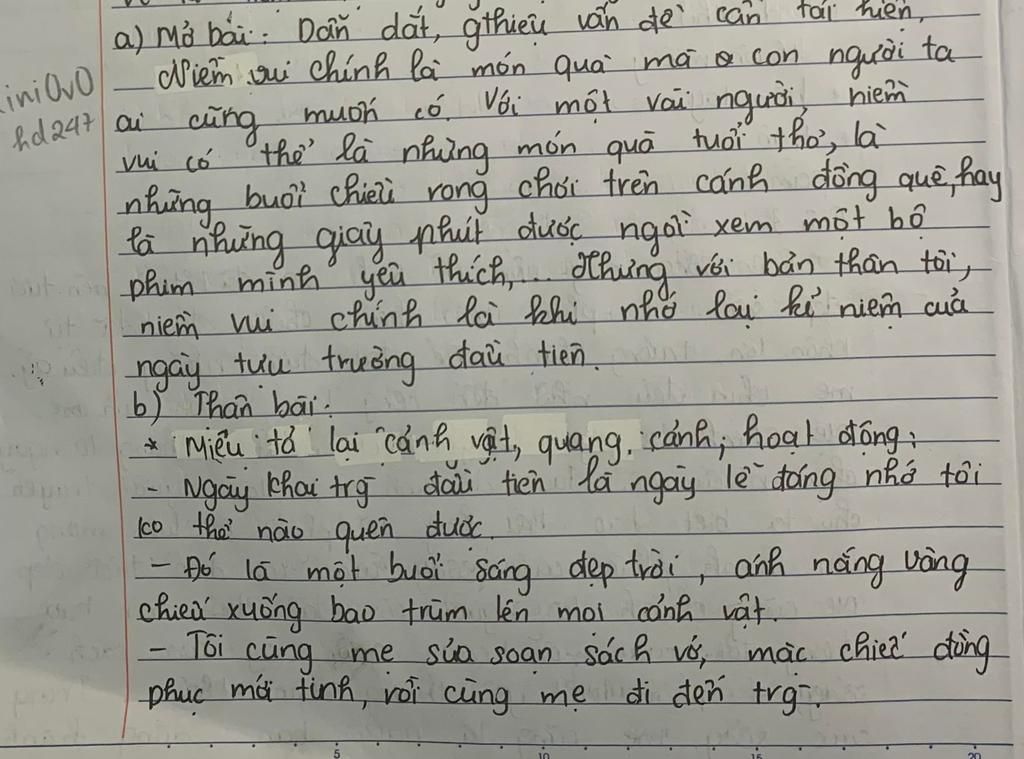 a) Mở bài: Dẫn dắt, gthiệu vấn đề cần tái hiện.
Niềm vui chính là món quà mà con người ta
iniOvO
ai cũng muốn có. Với một vài người, niềm
hd247
vui có thể là những món quà tuổi thơ, là
những buổi chiều rong chơi trên cánh đồng quê, hay
là những giây phút được ngồi xem một bộ
phim mình yêu thích,... Nhưng với bản thân tôi,
niềm vui chính là khi nhớ lại kỉ niệm của
ngày tựu trường đầu tiên.
b) Thân bài:
* Miêu tả lại cảnh vật, quang cảnh, hoạt động:
- Ngày khai trg đầu tiên là ngày lễ đáng nhớ tôi
ko thể nào quên được.
- Đó là một buổi sáng đẹp trời, ánh nắng vàng
chiếu xuống bao trùm lên mọi cảnh vật.
- Tôi cùng mẹ sửa soạn sách vở, mặc chiếc đồng
phục mới tinh, rồi cùng mẹ đi đến trg.
5 10 15 20